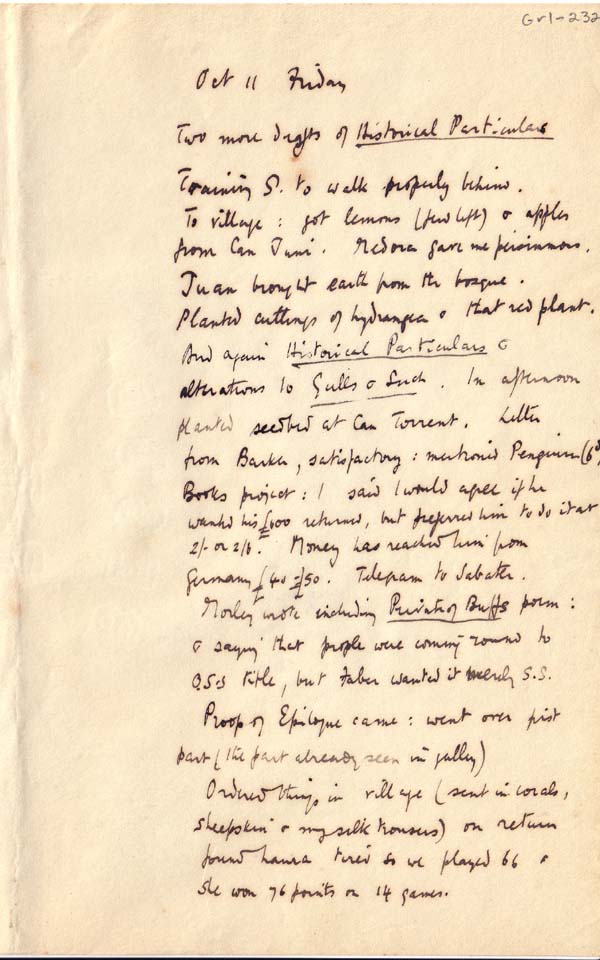 Gr1-232
Oct 11 Friday
Two more drafts of Historical Particulars
Training S. to walk properly behind.
To village : got lemons (few left) & apples
from Can Tuni. Medora gave me persimmons.
Juan brought earth from the bosque.
Planted cuttings of hydrangea & that red plant.
And again Historical Particulars &
alterations to Gulls & Such. In afternoon
planted seedbed at Can Torrent. Letter
from Barker, satisfactory : mentioned Penguin (6d)
Books project : I said I would agree if he
wanted his £600 returned, but preferred him to do it at
2/- or 2/6. Money has reached him from
Germany £40 = £50. Telegram to Sabater.
Morley wrote including Private of Buffs poem :
& saying that people were coming round to
O.S.S title, but Faber wanted it merely S.S.
Proof of Epilogue came : went over first
part (the part already seen in galley)
Ordered things in village (sent in corals,
sheepskin & my silk trousers) on return
found Laura tired so we played 66 &
she won 76 points on 14 games.